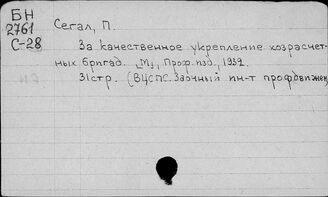 БН
2761
С-28
Сегал, П.
За качественное укрепление хозрасчет-
ных бригад. М., Проф. изд., 1932.
31стр. (ВЦСПС. Заочный ин-т профдвижен)